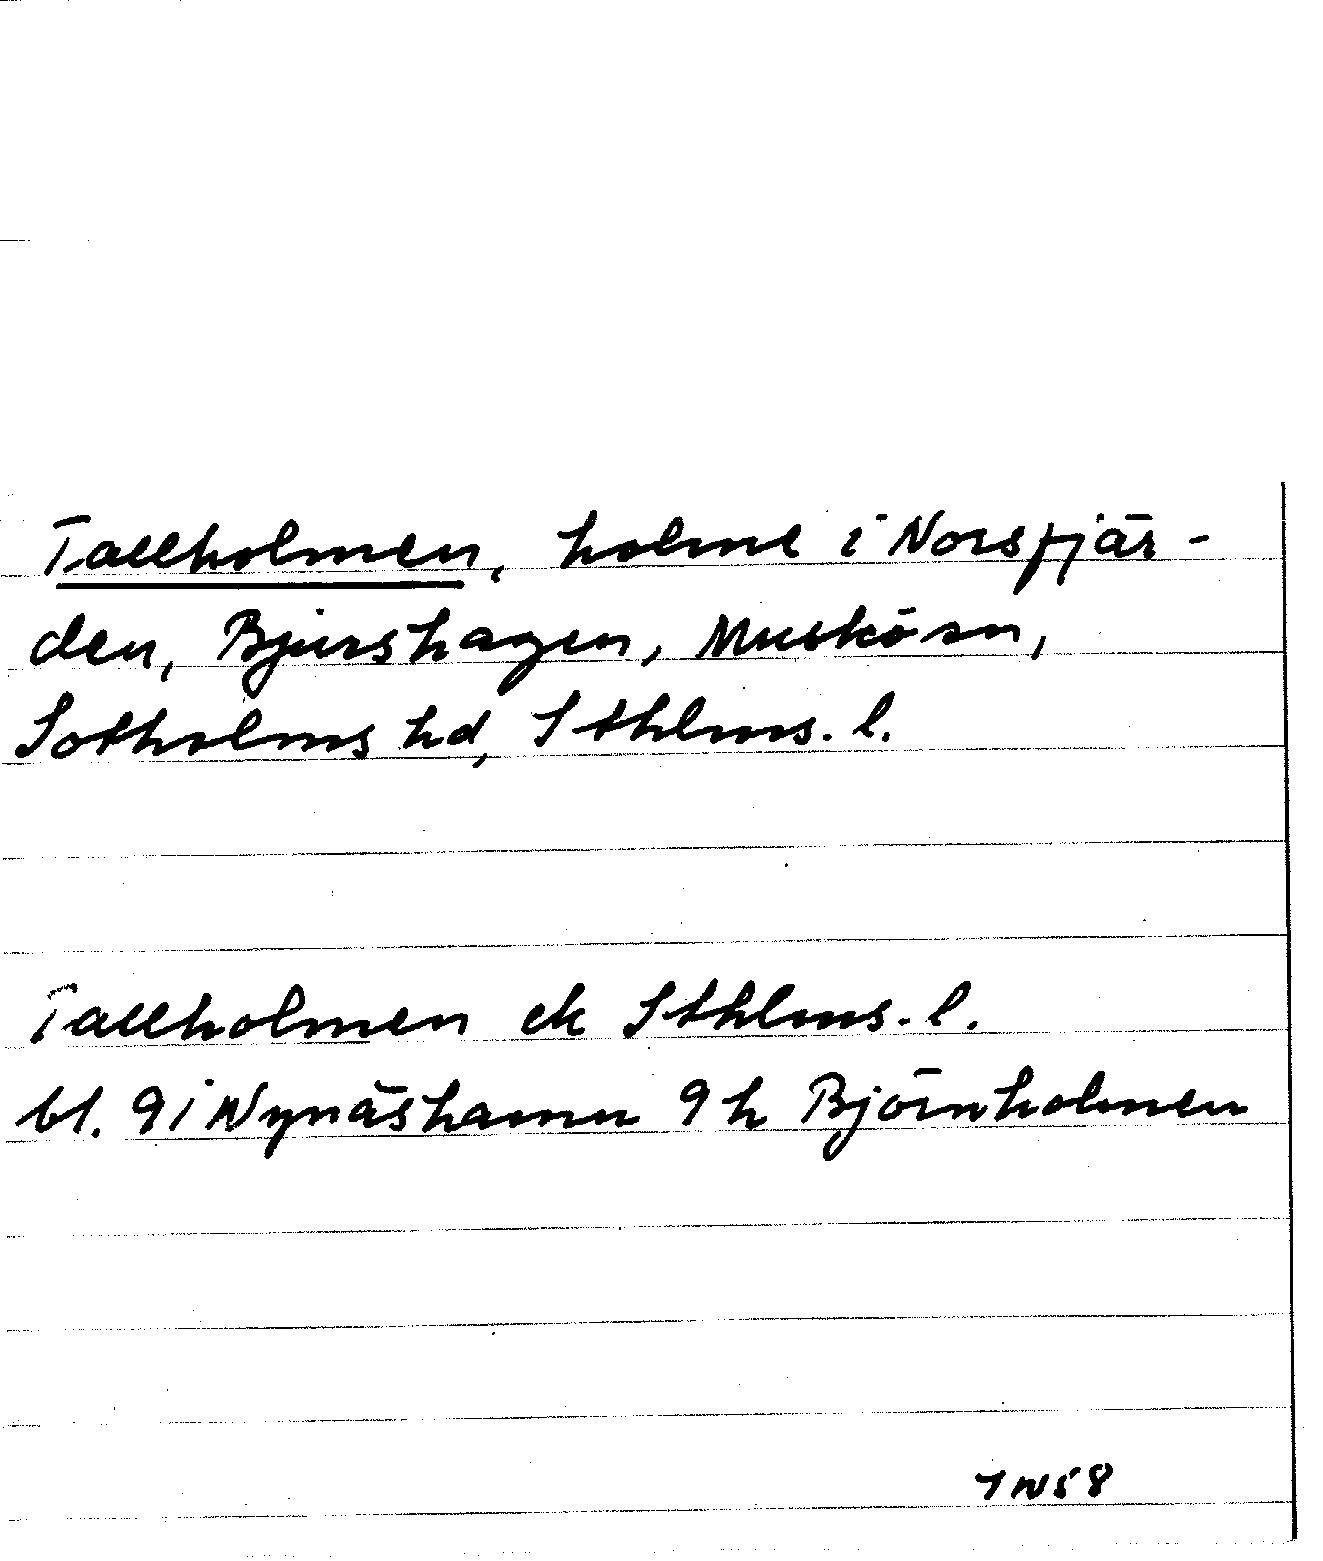 Tallholmen, holme i Norsfjär-
den, Bjurshagen, Muskö sn,
Sotholms hd, Sthlms. l.
Tallholmen ek Sthlms. l.
bl. 9i Nynäshamn 9h Björnholmen